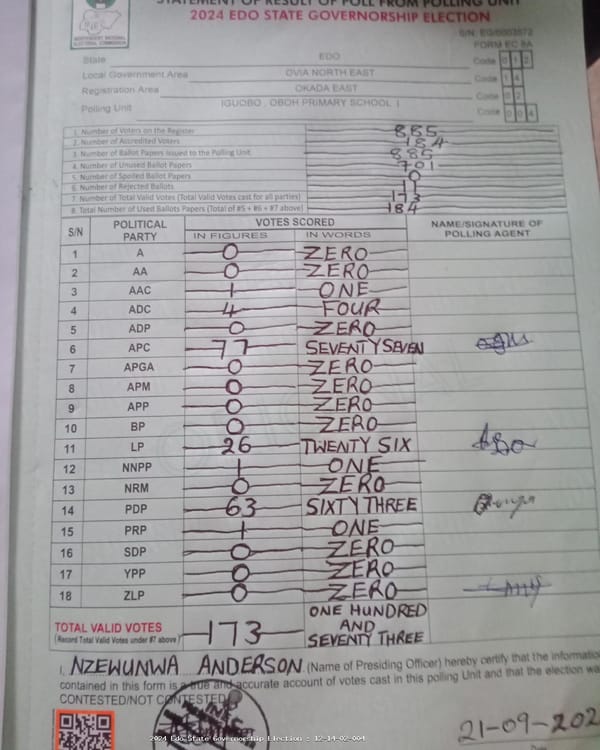 STATEMENT OF RESULT OF POLL FROM POLLING UNIT
2024 EDO STATE GOVERNORSHIP ELECTION
INDEPENDENT NATIONAL
ELECTORAL COMMISSION
S/N: EG/0003572
FORM EC 8A
State EDO Code 1 2
Local Government Area OVIA NORTH EAST Code 1 4
Registration Area OKADA EAST Code 0 2
Polling Unit IGUOBO . OBOH PRIMARY SCHOOL I Code 0 0 4
1. Number of Voters on the Register 885
2. Number of Accredited Voters 184
3. Number of Ballot Papers Issued to the Polling Unit 885
4. Number of Unused Ballot Papers 701
5. Number of Spoiled Ballot Papers 0
6. Number of Rejected Ballots 11
7. Number of Total Valid Votes (Total Valid Votes cast for all parties) 173
8. Total Number of Used Ballots Papers (Total of #5 + #6 + #7 above) 184
S/N POLITICAL PARTY VOTES SCORED NAME/SIGNATURE OF POLLING AGENT
IN FIGURES IN WORDS
1 A 0 ZERO
2 AA 0 ZERO
3 AAC 1 ONE
4 ADC 4 FOUR
5 ADP 0 ZERO
6 APC 77 SEVENTY SEVEN
7 APGA 0 ZERO
8 APM 0 ZERO
9 APP 0 ZERO
10 BP 0 ZERO
11 LP 26 TWENTY SIX
12 NNPP 1 ONE
13 NRM 0 ZERO
14 PDP 63 SIXTY THREE
15 PRP 1 ONE
16 SDP 0 ZERO
17 YPP 0 ZERO
18 ZLP 0 ZERO
TOTAL VALID VOTES
(Record Total Valid Votes under #7 above) 173 ONE HUNDRED AND SEVENTY THREE
I, NZEWUNWA ANDERSON (Name of Presiding Officer) hereby certify that the information
contained in this form is a true and accurate account of votes cast in this polling Unit and that the election was
CONTESTED/NOT CONTESTED
2024 Edo State Governorship Election : 12-14-02-004
21-09-202